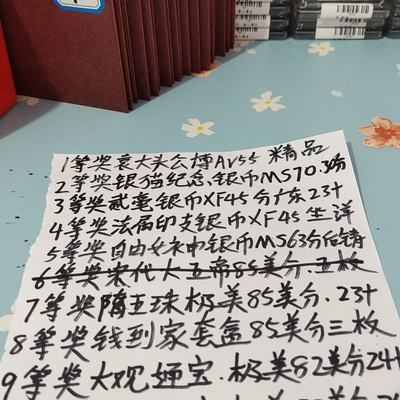 1等奖袁大头公博AV55 精品
2等奖银猫纪念银币MS70.30分
3等奖贰毫银币XF45分广东23十
4等奖法属印支银币XF45坐洋
5等奖自由女神银币MS63分后铸
6等奖宋代大五帝85美分.五枚
7等奖隋五珠极美85美分.23十
8等奖钱到家套盒85美分三枚
9等奖大观通宝.极美82美分24十